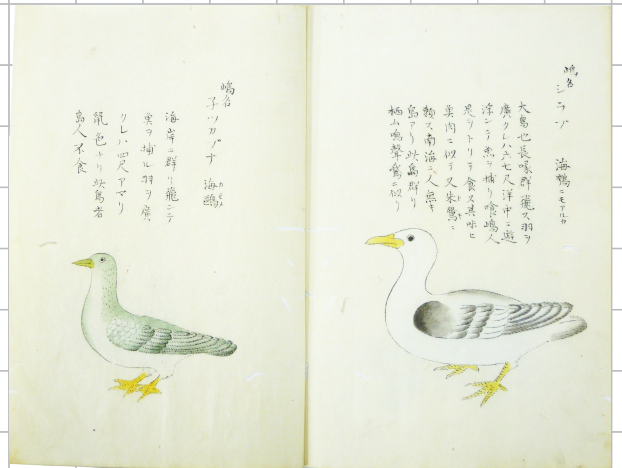 嶋名
シラブ 海鵝ニモアルカ
大鳥也長喙群飛ス羽ヲ
廣クレハ六七尺洋中ニ遊
浮シテ魚ヲ捕リ喰嶋人
是ヲトリテ食ス其味ヒ
魚肉ニ似テ又朱鷺ニ
類ス南海ニハ人無キ
島アリ此鳥群リ
栖ム鳴聲ニ似リ
嶋名
子ツカバナ 海鴎
カモメ
海岸ニ群リ飛ンテ
魚ヲ捕ル羽ヲ廣
クレハ四尺アマリ
鼠色ナリ此鳥者
島人不食